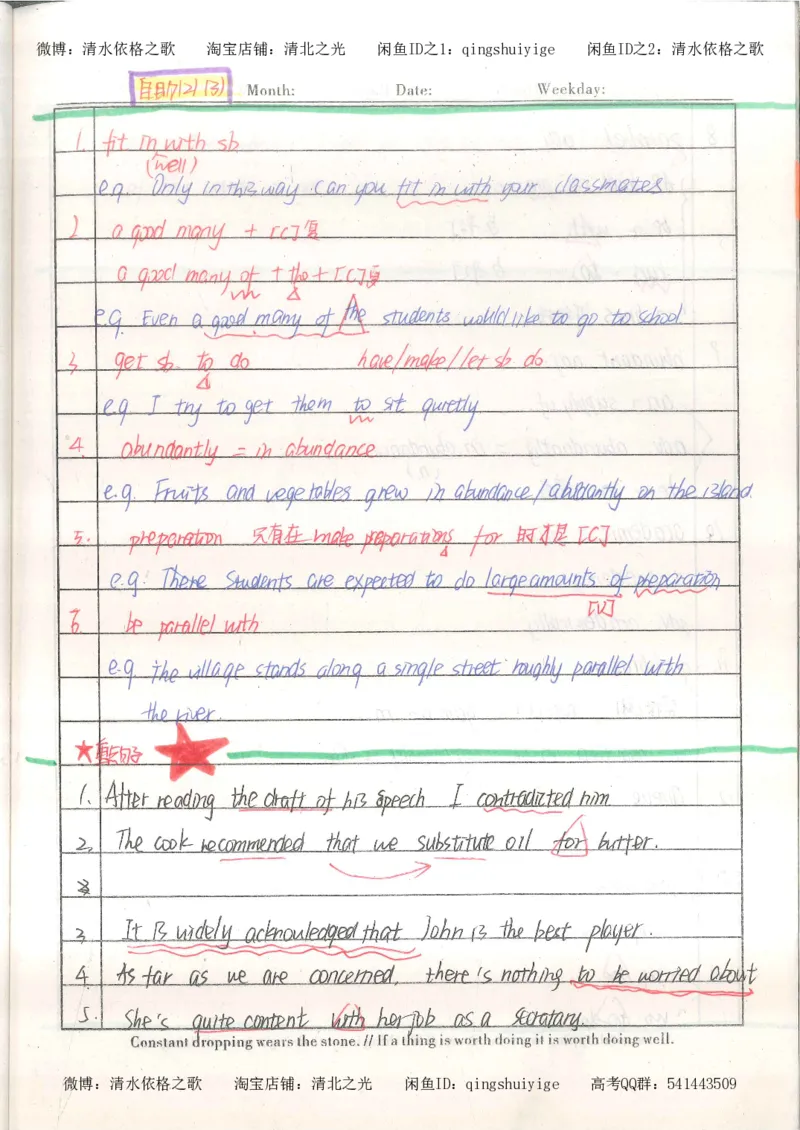 微博：清水依格之歌 淘宝店铺：清北之光 闲鱼ID之1：qingshuiyige 闲鱼ID之2：清水依格之歌
自助7(2)(3) Month: Date: Weekday:
1. fit in with sb
(well)
e.g. Only in this way can you fit in with your classmates
2. a good many + [C]复
a good many of + the + [C]复
e.g. Even a good many of the students would like to go to school
3. get sb. to do have/make/let sb. do
e.g. I try to get them to sit quietly
4. abundantly = in abundance
e.g. Fruits and vegetables grew in abundance/ on the island.
5. preparation 只有在 make preparations for 时才是 [C]
e.g. There students are expected to do large amounts of preparation
[U]
6. be parallel with
e.g. the village stands along a single street roughly parallel with
the river.
★ 句子
1. After reading the draft of his speech I contradicted him
2. The cook recommended that we substitute oil for butter.
3 It is widely acknowledged that John is the best player.
4 As far as we are concerned, there's nothing to be worried about
5. She's quite content with her job as a secratary.
Constant dropping wears the stone. // If a thing is worth doing it is worth doing well.
微博：清水依格之歌 淘宝店铺：清北之光 闲鱼ID：qingshuiyige 高考QQ群：541443509